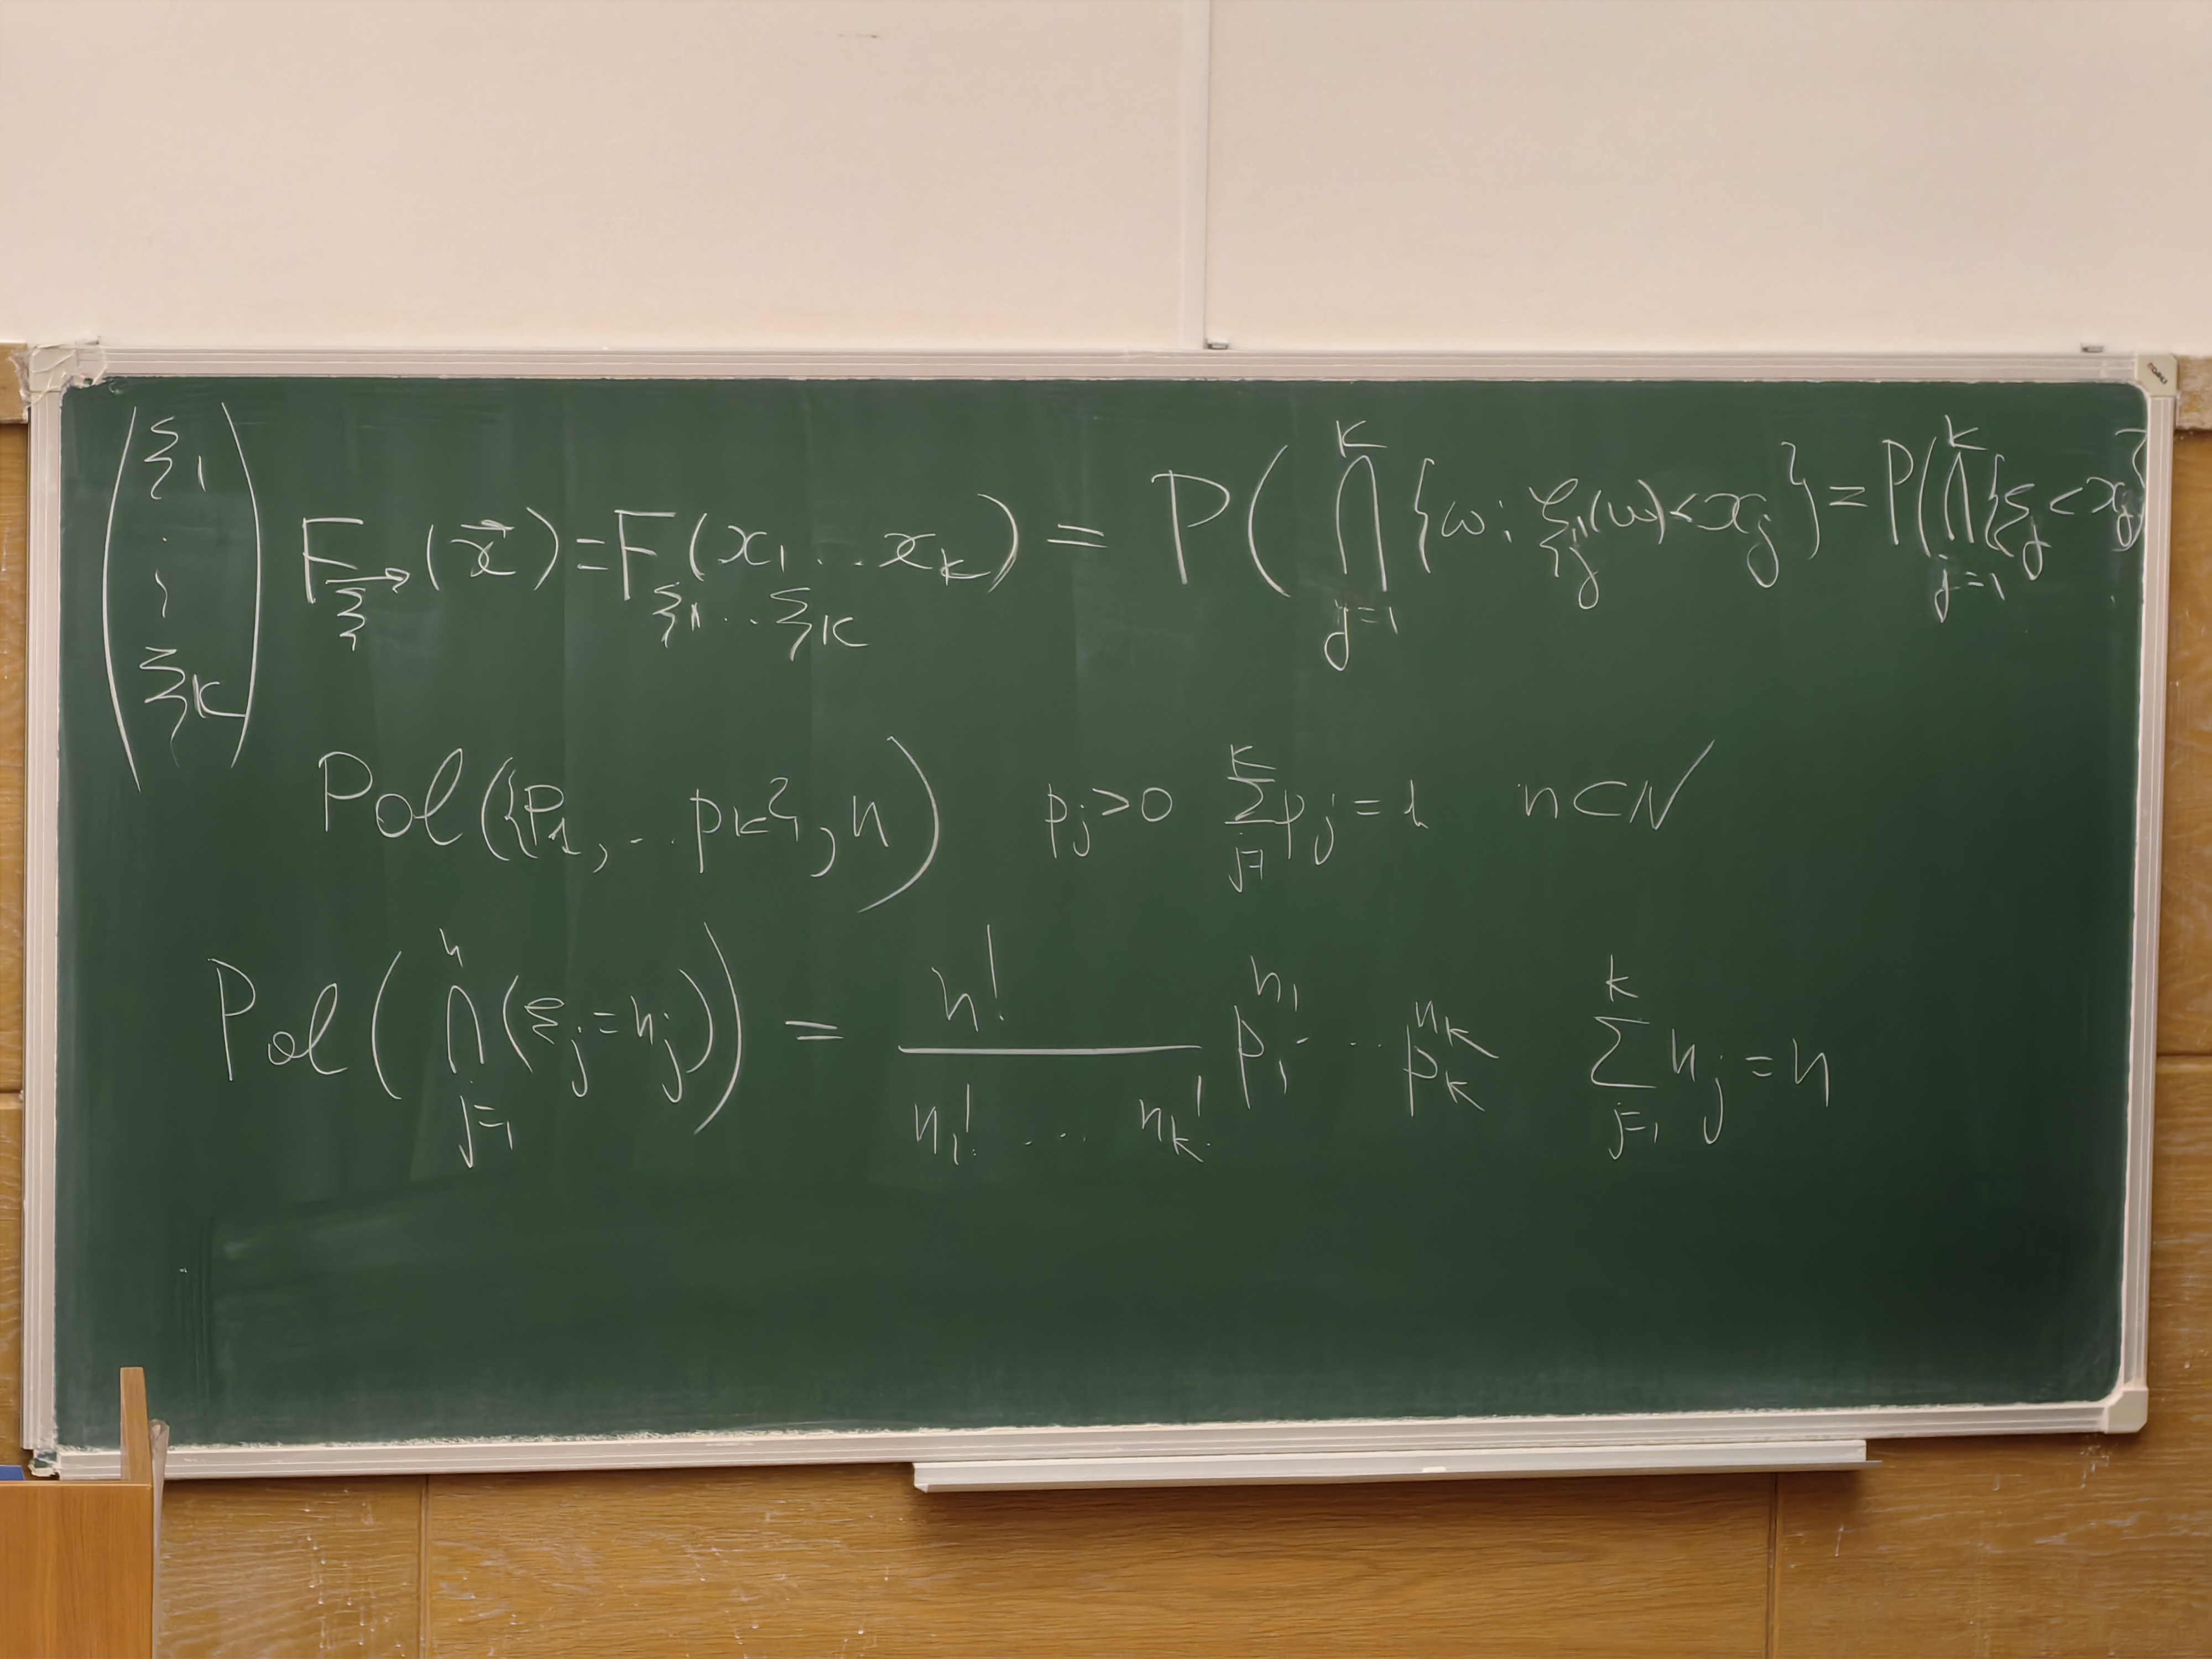 (ξ₁ ⋮ ξ_K) F_ξ⃗(x⃗) = F_{ξ₁...ξ_K}(x₁...x_k) = P(⋂_{j=1}^{K} {ω: ξ_j(ω) < x_j}) = P(⋂_{j=1}^{k} {ξ_j < x_j}
Pol({p₁, ... p_K}, n) p_j > 0 ∑_{j=1}^{K} p_j = 1 n ⊂ N
Pol(⋂_{j=1}^{n} (ξ_j = n_j)) = n! / (n₁! ... n_k!) p₁^{n₁} ... p_k^{n_k} ∑_{j=1}^{k} n_j = n